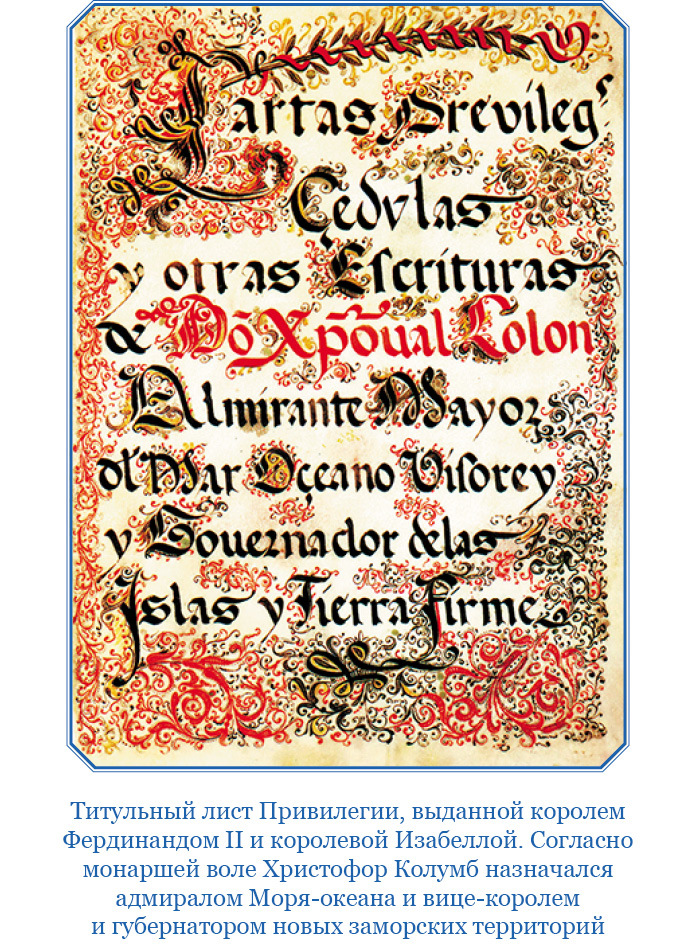 Cartas Previlegs
Çedulas
y otras Escrituras
de Dõ Xpõual Colon
Almirante Mayor
dl Mar Oçeano Visorey
y Gouernador delas
Islas y Tierra Firme
Титульный лист Привилегии, выданной королем
Фердинандом II и королевой Изабеллой. Согласно
монаршей воле Христофор Колумб назначался
адмиралом Моря-океана и вице-королем
и губернатором новых заморских территорий